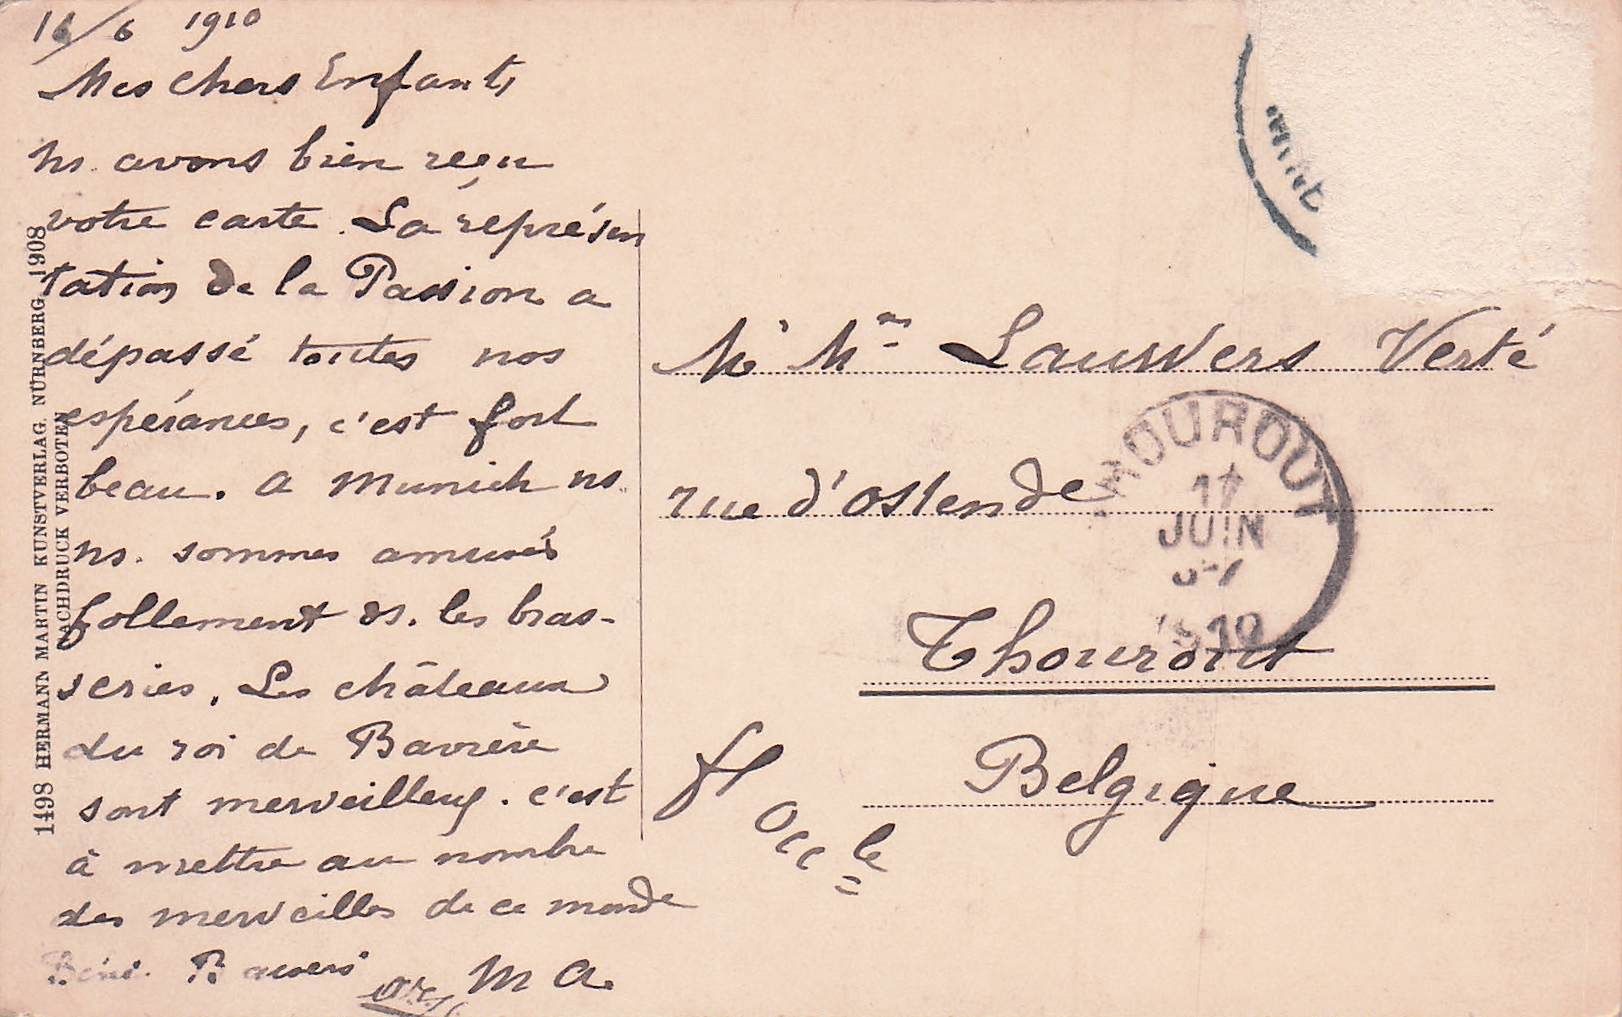 16/6 1910
Mes chers Enfants
ns. avons bien reçu
votre carte. La représen
tation de la Passion a
dépassé toutes nos
espérances, c'est fort
beau. a Munich ns.
ns. sommes amusés
follement ds. les bras-
series. Les châteaux
du roi de Bavière
sont merveilleux. c'est
à mettre au nombre
des merveilles de ce monde
Baisers M A.
1498 HERMANN MARTIN KUNSTVERLAG, NÜRNBERG, 1908
NACHDRUCK VERBOTEN
Mr Mme Lauwers Verté
rue d'Ostende
Thourout
Belgique
fl Occle
THOUROUT
17
JUIN
1910